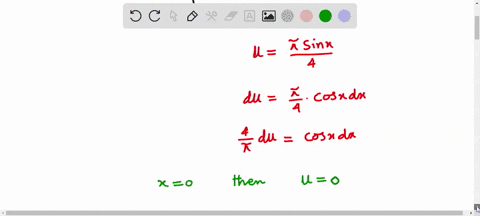 u = π sinx / 4
du = π/4 · cosxdx
4/π du = cosxdx
x=0 then u=0